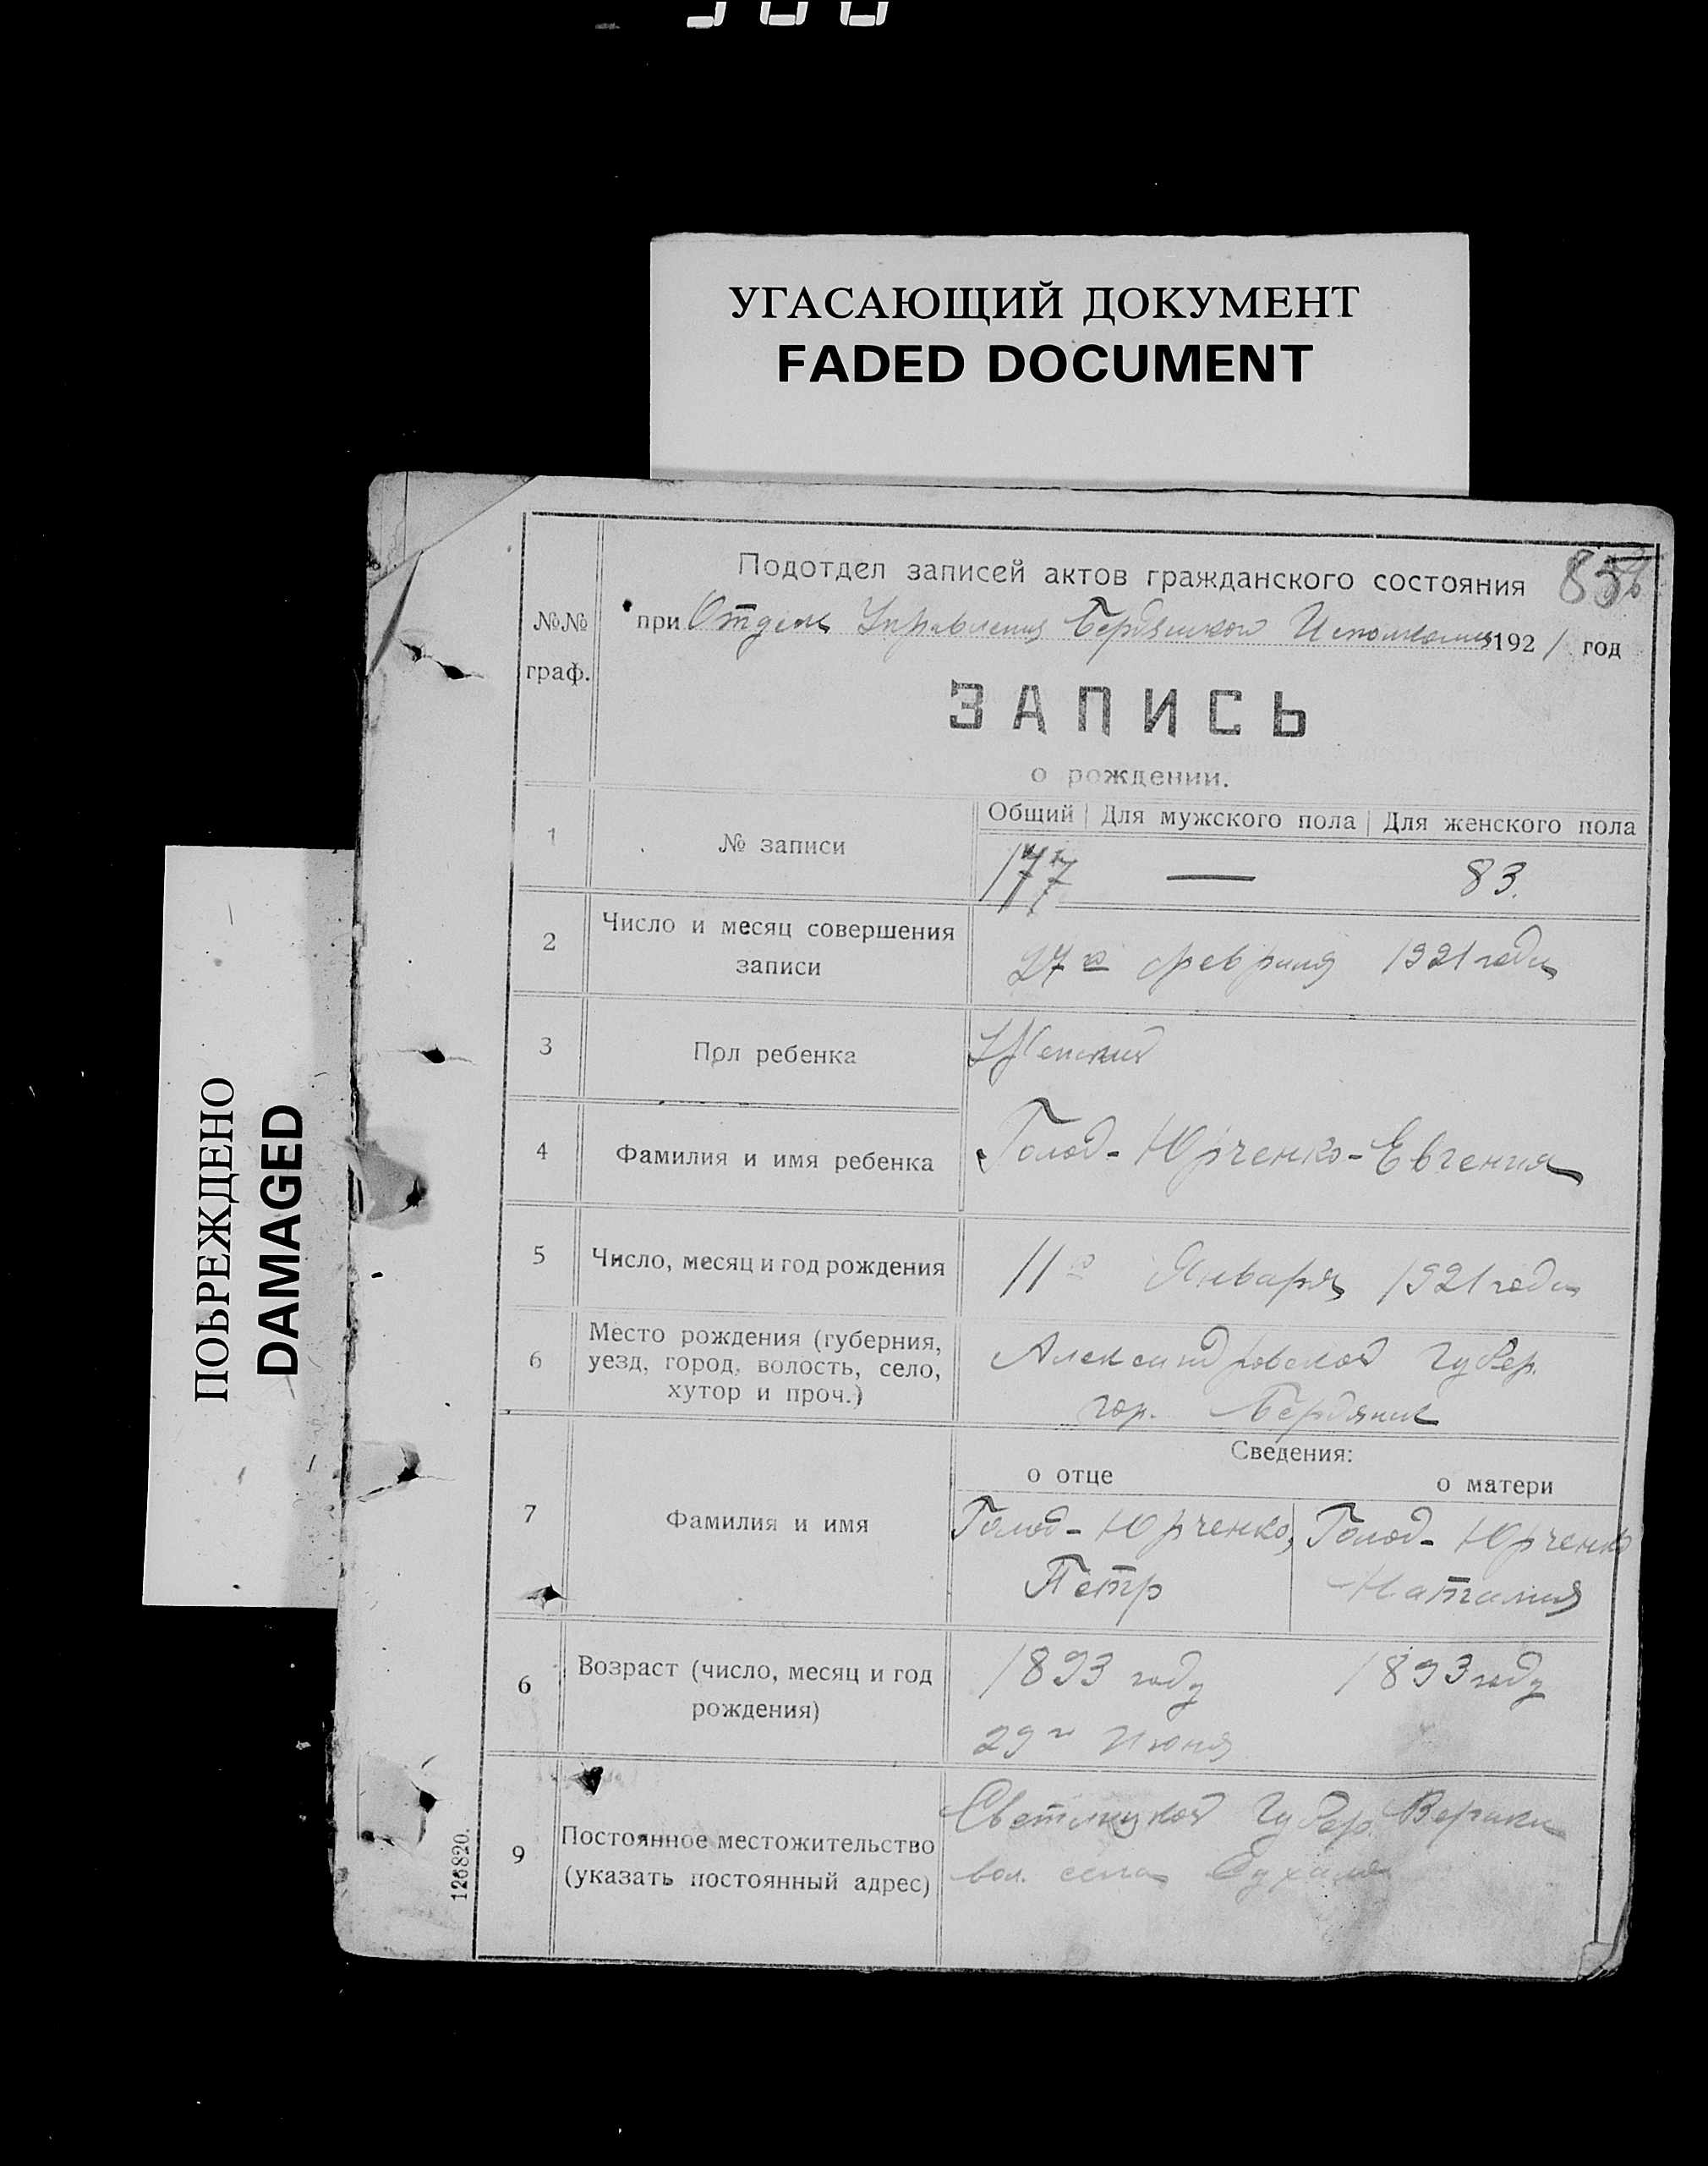 УГАСАЮЩИЙ ДОКУМЕНТ
FADED DOCUMENT
ПОЬРЕЖДЕНО
DAMAGED
Подотдел записей актов гражданского состояния
№№ граф.
при Отделе Управления Бердянского Исполкома 1921 год
ЗАПИСЬ
о рождении.
Общий Для мужского пола Для женского пола
1 № записи 177 — 83.
2 Число и месяц совершения
записи
27го февраля 1921 года
3 Пол ребенка Женский
4 Фамилия и имя ребенка Голод-Юрченко-Евгения
5 Число, месяц и год рождения 11го Января 1921 года
6 Место рождения (губерния,
уезд, город, волость, село,
хутор и проч.)
Александровской Губер.
гор. Бердянск
Сведения:
о отце о матери
7 Фамилия и имя
Голод-Юрченко, Голод-Юрченко
Петр Наталия
6 Возраст (число, месяц и год
рождения)
1893 году 1893 году
29го Июня
9 Постоянное местожительство
(указать постоянный адрес)
Губер.
вол. села
126820.